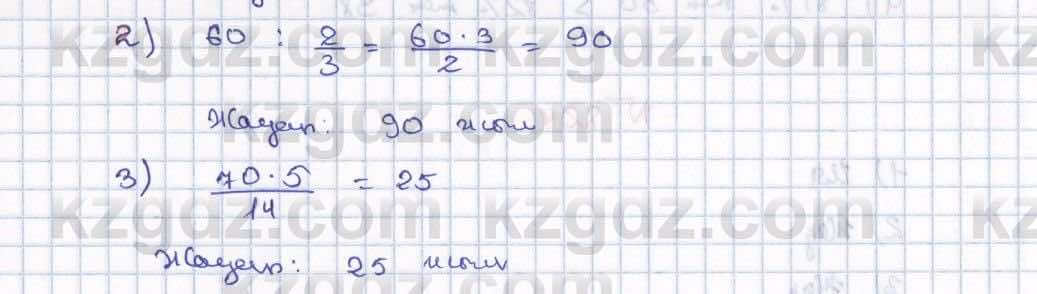 2) 60 : 2/3 = 60·3/2 = 90
Жауап: 90 жыл
3) 70·5/14 = 25
Жауап: 25 жыл
kzgdz.com kzgdz.com kz
kzgdz.com kzgdz.com kz